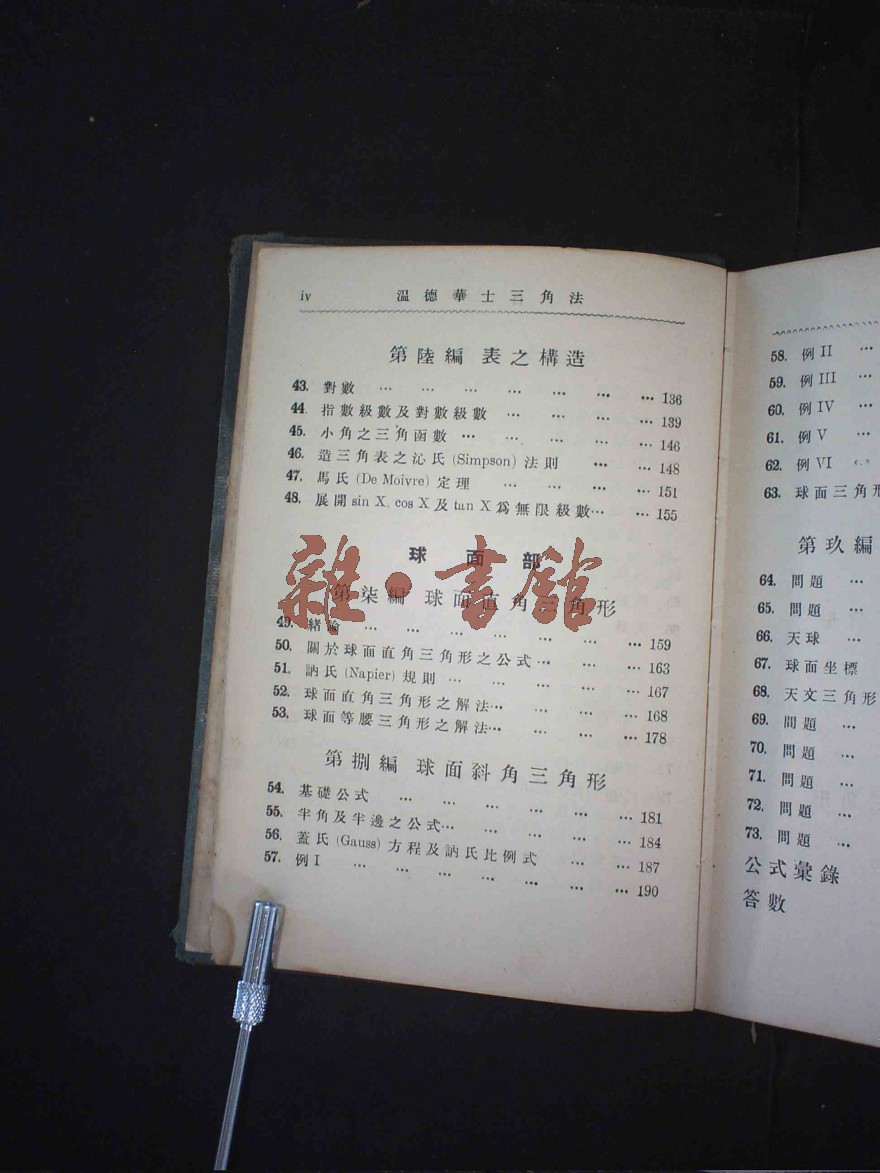 iv 溫德華士三角法
第陸編 表之構造
43. 對數 … … … … … … … 136
44. 指數級數及對數級數 … … … … 139
45. 小角之三角函數 … … … … … 146
46. 造三角表之沁氏 (Simpson) 法則 … … 148
47. 馬氏 (De Moivre) 定理 … … … … 151
48. 展開 sin X, cos X 及 tan X 爲無限級數… … 155
球面部
第柒編 球面直角三角形
49. 緒論 … … … … … … … 159
50. 關於球面直角三角形之公式… … … 163
51. 訥氏 (Napier) 規則 … … … … … 167
52. 球面直角三角形之解法… … … … 168
53. 球面等腰三角形之解法… … … … 178
第捌編 球面斜角三角形
54. 基礎公式 … … … … … … 181
55. 半角及半邊之公式… … … … … 184
56. 蓋氏 (Gauss) 方程及訥氏比例式 … … 187
57. 例 I … … … … … … … 190
58. 例 II …
59. 例 III …
60. 例 IV …
61. 例 V …
62. 例 VI
63. 球面三角形
第玖編
64. 問題 …
65. 問題 …
66. 天球 …
67. 球面坐標
68. 天文三角形
69. 問題 …
70. 問題 …
71. 問題 …
72. 問題 …
73. 問題 …
公式彙錄
答數
雜·書館